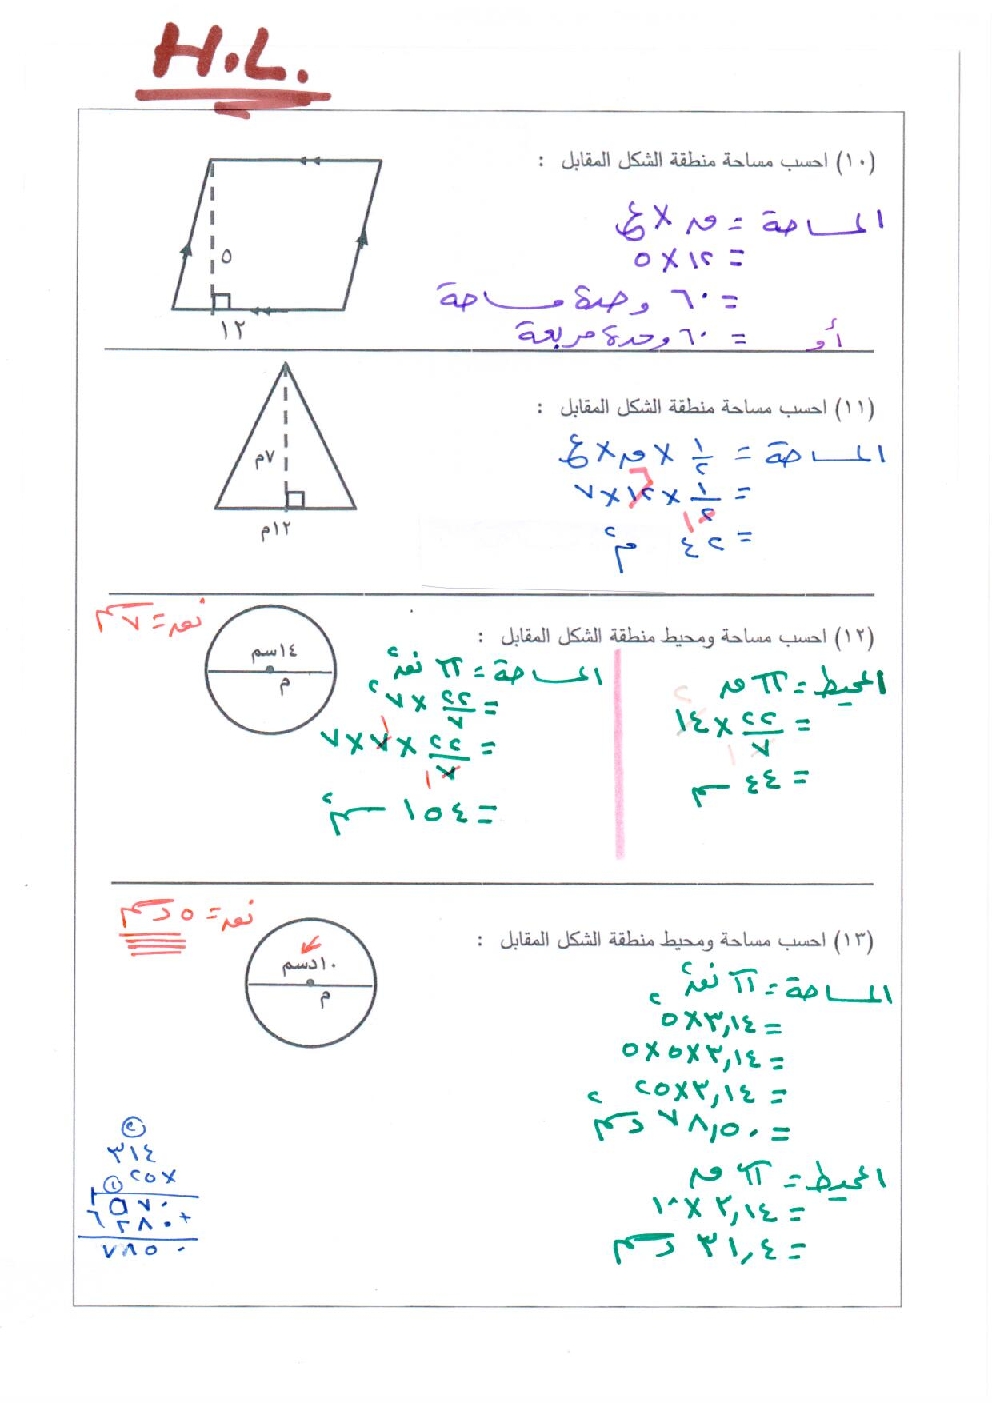 H.L.
(١٠) احسب مساحة منطقة الشكل المقابل :
٥
١٢
المساحة = ق × ع
= ١٢ × ٥
= ٦٠ وحدة مساحة
أو = ٦٠ وحدة مربعة
(١١) احسب مساحة منطقة الشكل المقابل :
٧م
١٢م
المساحة = ١/٢ × ق × ع
= ١/٢ × ١٢ × ٧
٦
١
= ٤٢ م²
(١٢) احسب مساحة ومحيط منطقة الشكل المقابل :
نق = ٧ سم
١٤سم
م
المحيط = π ق
= ٢٢/٧ × ١٤
= ٤٤ سم
المساحة = π نق²
= ٢٢/٧ × ٧²
= ٢٢/٧ × ٧ × ٧
١
١
= ١٥٤ سم²
(١٣) احسب مساحة ومحيط منطقة الشكل المقابل :
نق = ٥ دسم
١٠دسم
م
المساحة = π نق²
= ٣,١٤ × ٥²
= ٣,١٤ × ٥ × ٥
= ٣,١٤ × ٢٥
= ٧٨,٥٠ دسم²
المحيط = π ق
= ٣,١٤ × ١٠
= ٣١,٤ دسم
٢
٣١٤
٢٥ ×
١
١٥٧٠
٦٢٨٠ +
٧٨٥٠